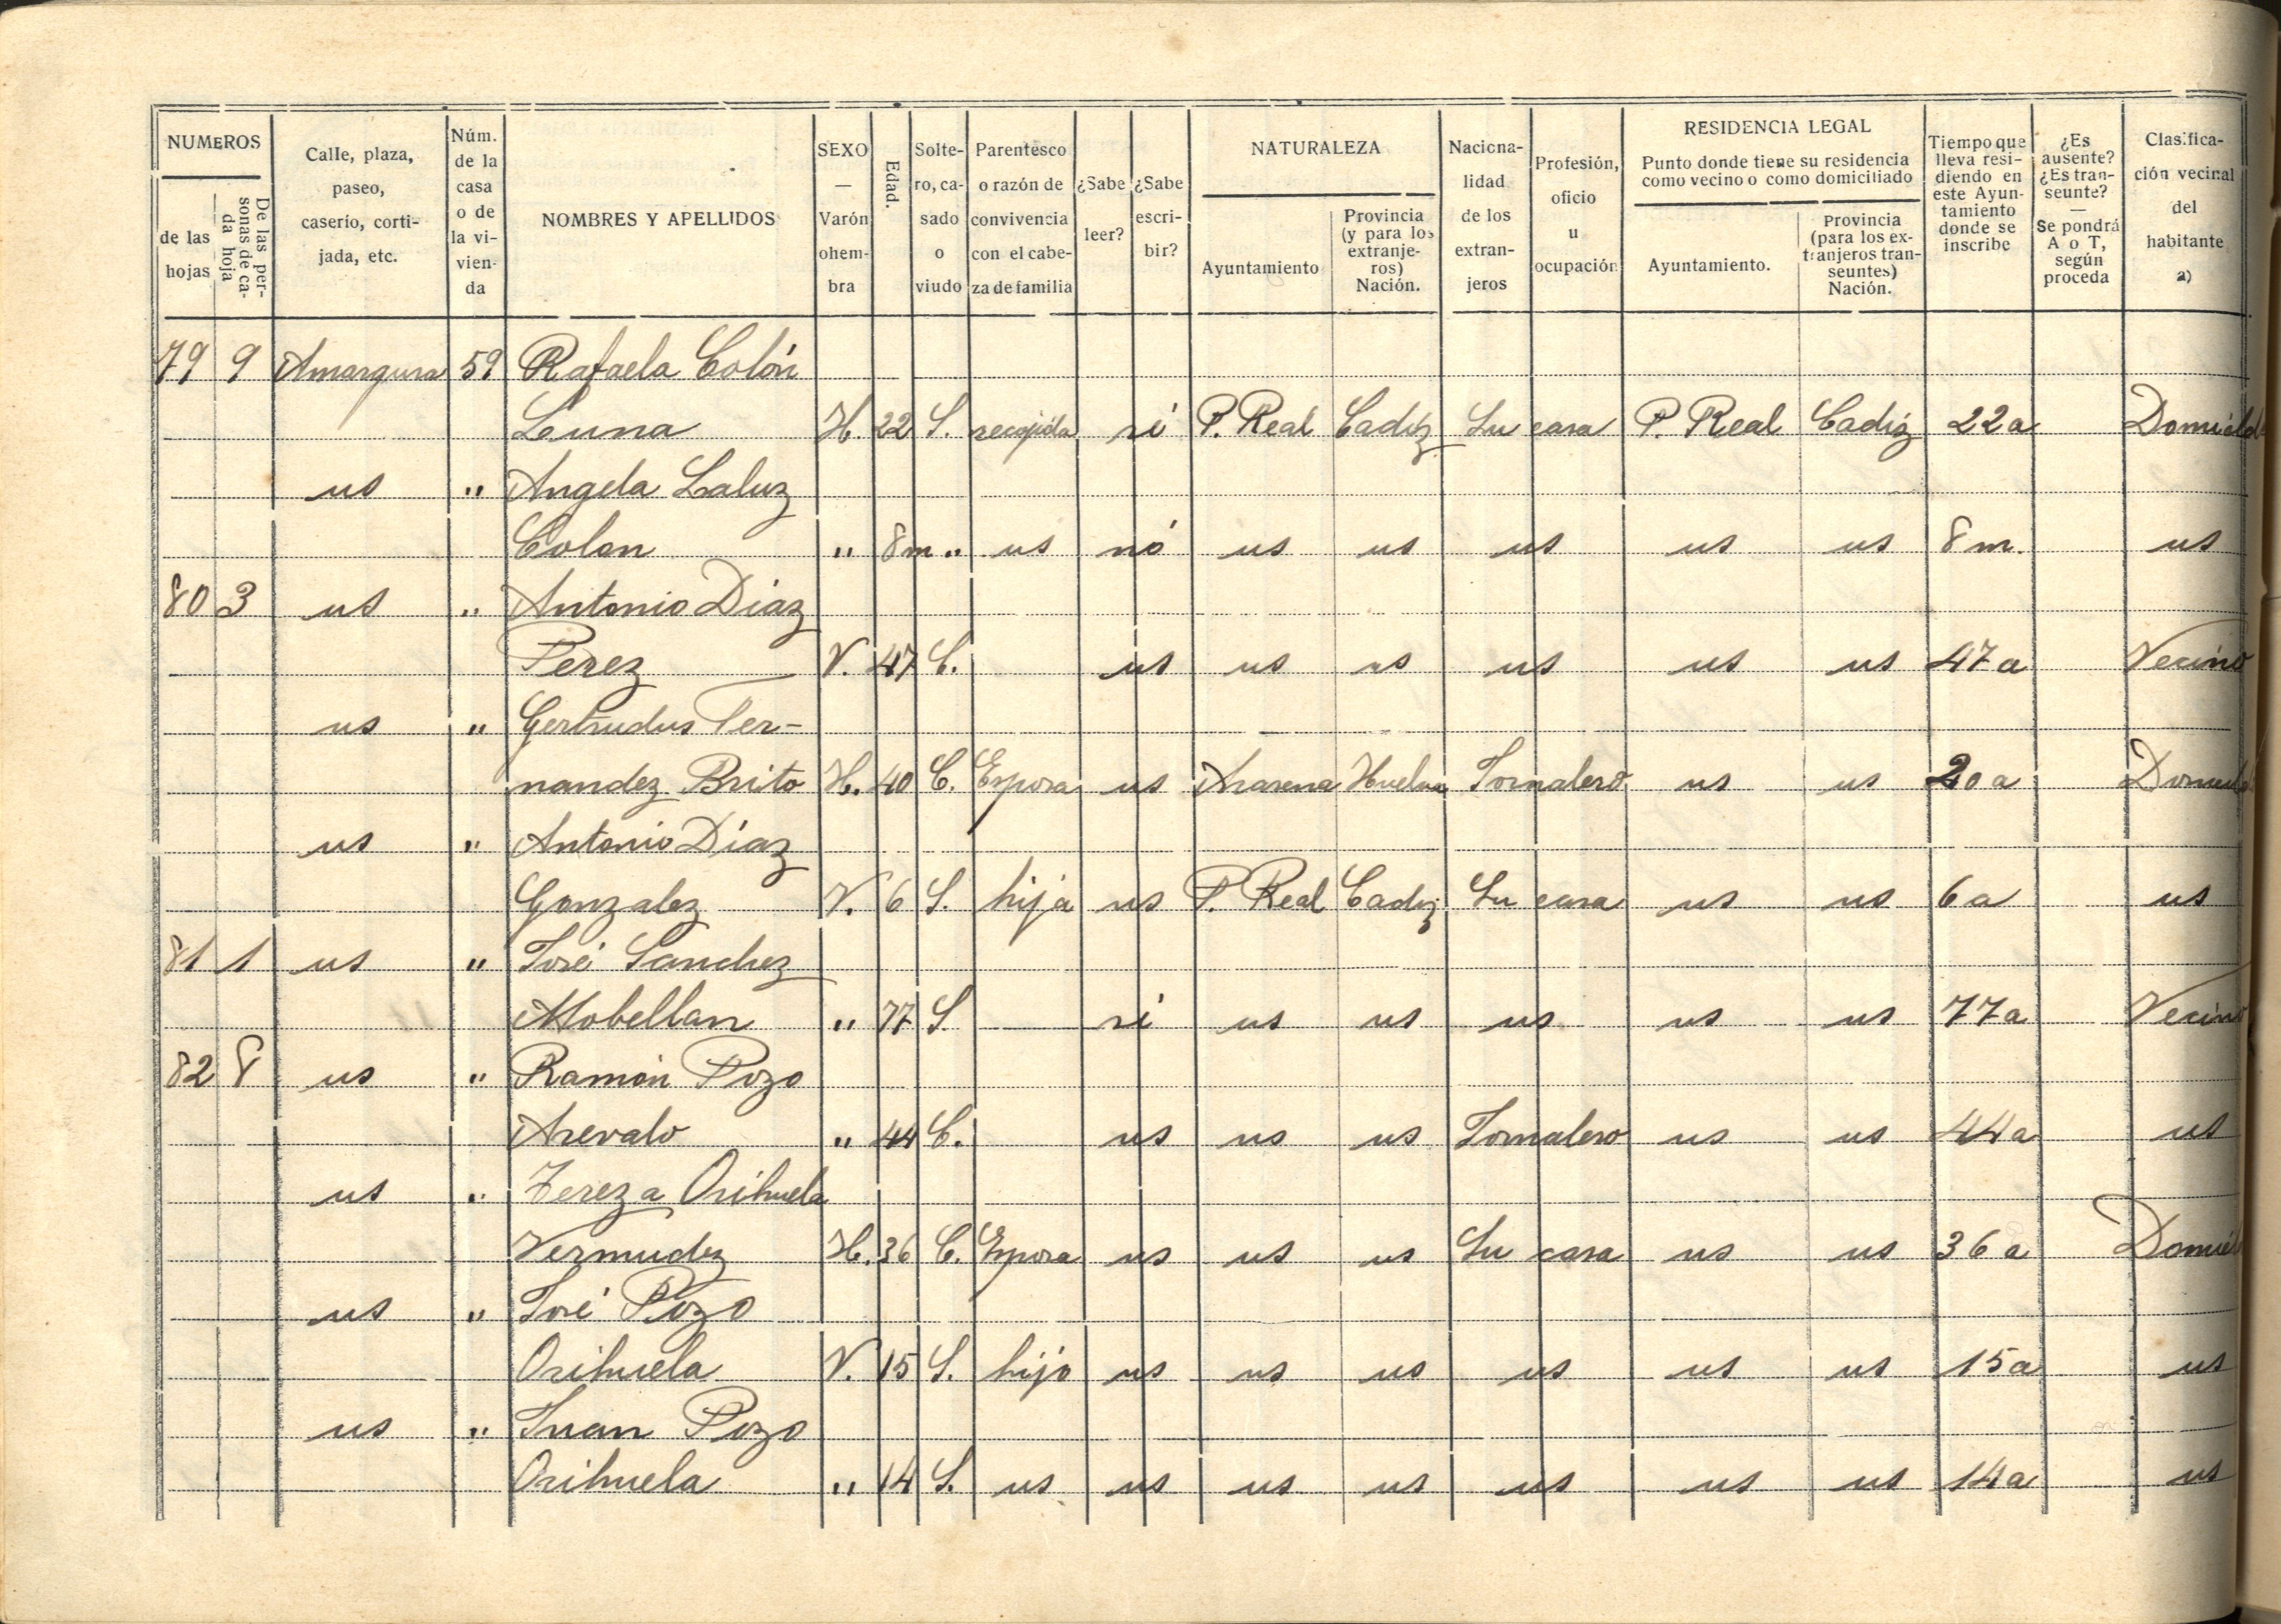 NUMEROS
de las hojas
De las personas de cada hoja
Calle, plaza, paseo, caserío, cortijada, etc.
Núm. de la casa o de la vivienda
NOMBRES Y APELLIDOS
SEXO — Varón o hembra
Edad.
Soltero, casado o viudo
Parentesco o razón de convivencia con el cabeza de familia
¿Sabe leer?
¿Sabe escribir?
NATURALEZA
Ayuntamiento
Provincia (y para los extranjeros) Nación.
Nacionalidad de los extranjeros
Profesión, oficio u ocupación
RESIDENCIA LEGAL
Punto donde tiene su residencia como vecino o como domiciliado
Ayuntamiento.
Provincia (para los extranjeros transeuntes) Nación.
Tiempo que lleva residiendo en este Ayuntamiento donde se inscribe
¿Es ausente? ¿Es transeunte? — Se pondrá A o T, según proceda
Clasificación vecinal del habitante a)
79 9 Amargura 59 Rafaela Colón
Luna H. 22 S. recojida si P. Real Cadiz Su casa P. Real Cadiz 22a Domicld
us " Angela Laluz
Colon " 8m " us nó us us us us us 8m. us
80 3 us " Antonio Diaz
Perez V. 47 C. us us us us us us 47a Vecino
us " Gertrudus Fer-
nandez Brito H. 40 C. Esposa us Arasena Huelva Jornalero us us 20a Domicld
us " Antonio Diaz
Gonzalez V. 6 S. hija us P. Real Cadiz Su casa us us 6a us
81 1 us " José Sanchez
Mobellan " 77 S. si us us us us us 77a Vecino
82 8 us " Ramón Pozo
Arevalo " 44 C. us us us Jornalero us us 44a us
us " Tereza Orihuela
Vermudez H. 36 C. Esposa us us us Su casa us us 36a Domicl
us " José Pozo
Orihuela V. 15 S. hijo us us us us us us 15a us
us " Juan Pozo
Orihuela " 14 S. us us us us us us us 14a us